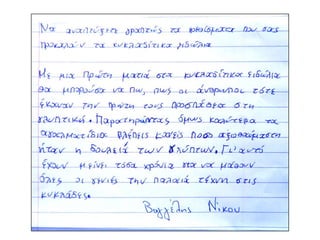 Να αναπτύξετε γραπτώς τα αισθήματα που σας
προκαλούν τα κυκλαδίτικα ειδώλια
Με μια πρώτη ματιά στα κυκλαδίτικα ειδώλια
θα μπορούσα να πω, πως οι άνθρωποι τότε
έκαναν την πρώτη τους προσπάθεια στη
γλυπτική. Παρατηρώντας όμως καλύτερα τα
αγαλματίδια βλέπεις κανείς πόσο αξιοθαύμαστη
ήταν η δουλειά των γλύπτων. Γι' αυτό
έχουν μείνει τόσα χρόνια για να μάθουν
όλες οι γενιές την παλαιά τέχνη στις
κυκλάδες.
Βαγγέλης Νίκου